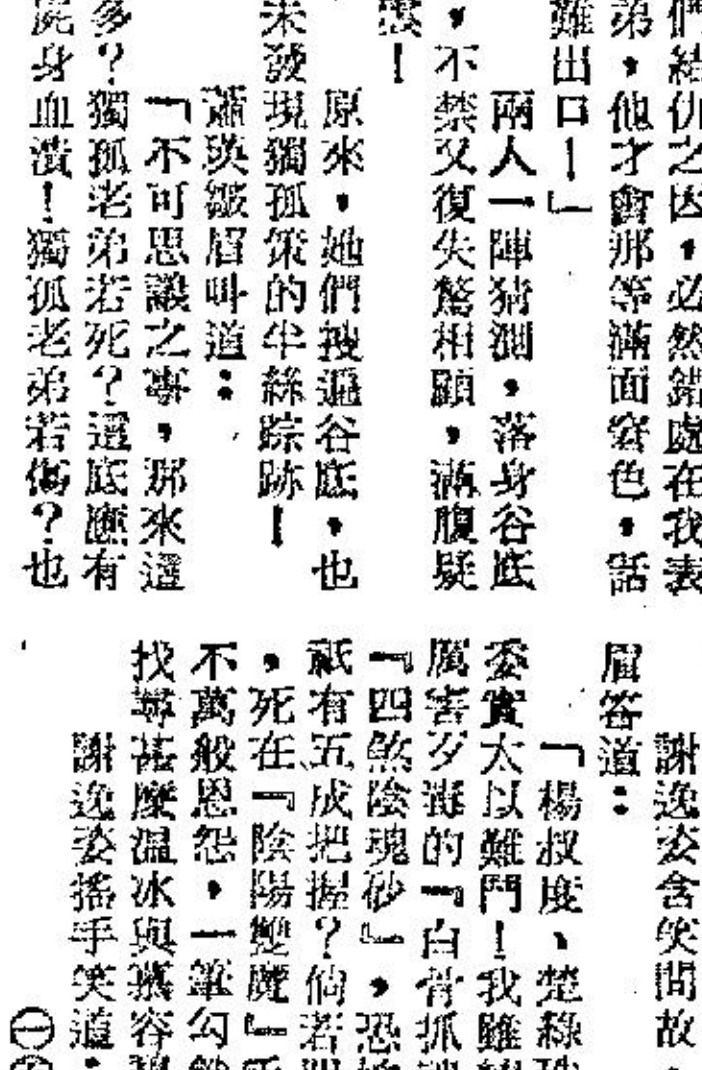 們結仇之因,必然錯處在我表
弟,他才會那等滿面窘色,話
難出口!」
兩人一陣猜測,落身谷底
,不禁又復失驚相顧,滿腹疑
!
原來,她們搜遍谷底,也
未發現獨孤策的半絲踪跡!
蕭瑛皺眉叫道:
「不可思議之事,那來這
多?獨孤老弟若死?這底應有
屍身血漬!獨孤老弟若傷?也
謝逸姿含笑問故,
眉答道:
「楊叔度、楚綠
委實太以難鬥!我雖
厲害歹毒的『白骨抓
『四煞陰魂砂』,恐
祇有五成把握?倘若
,死在『陰陽雙魔』
不萬般恩怨,一筆勾
找尋甚麼溫冰與慕容
謝逸姿搖手笑道:
㊀